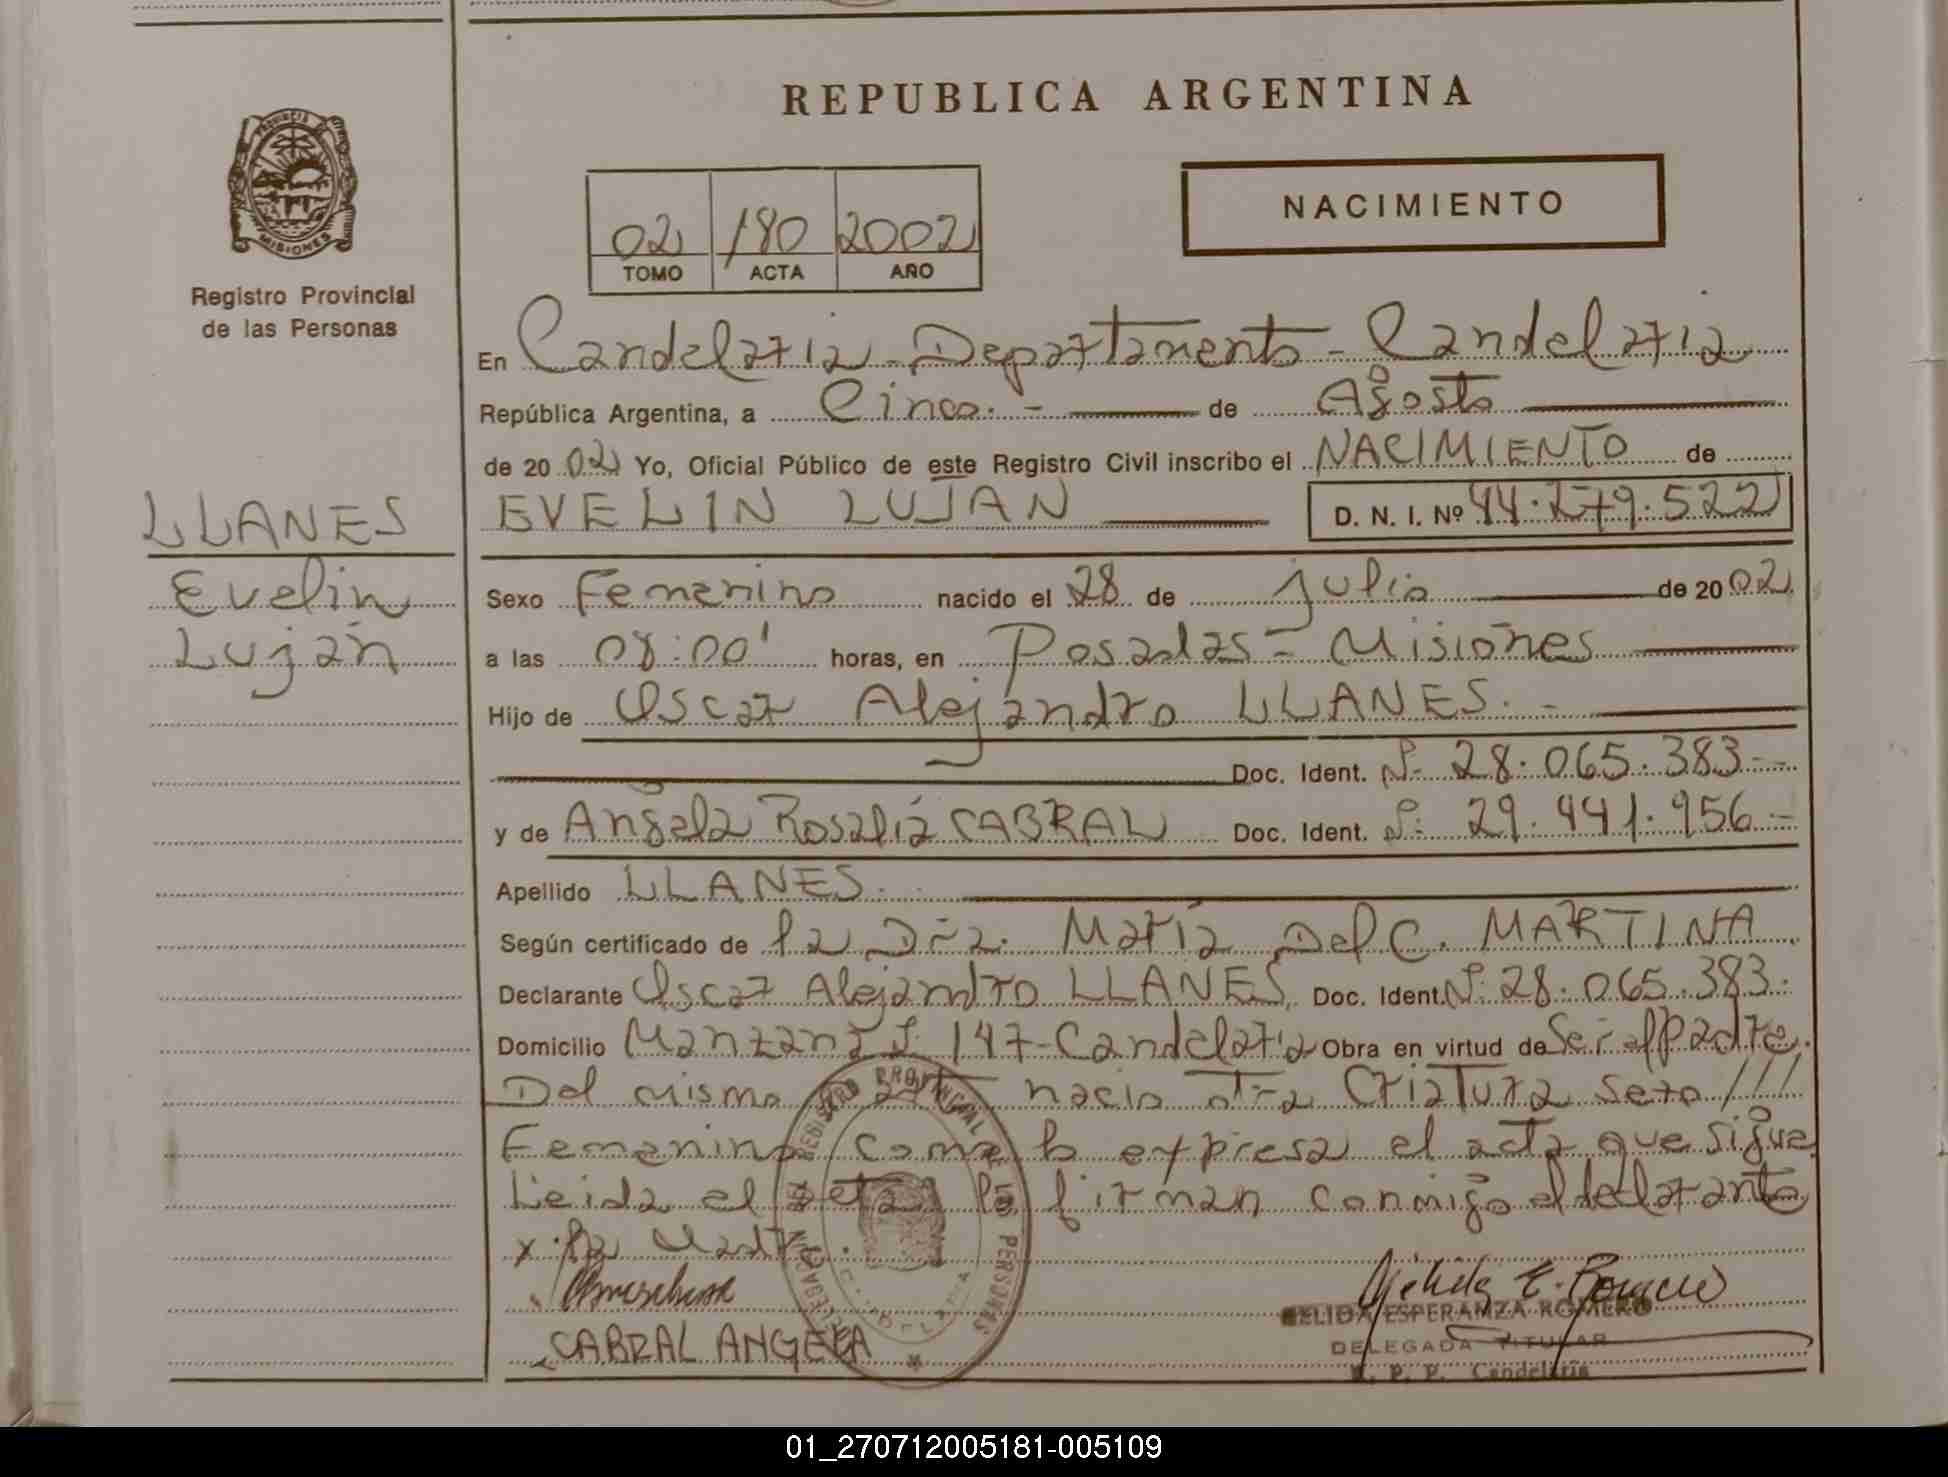 REPUBLICA ARGENTINA
PROVINCIA DE
MISIONES
Registro Provincial
de las Personas
NACIMIENTO
02 180 2002
TOMO ACTA AÑO
En Candelaria - Departamento - Candelaria
República Argentina, a Cinco. - de Agosto
de 2002 Yo, Oficial Público de este Registro Civil inscribo el NACIMIENTO de
LLANES
Evelin
Luján
EVELIN LUJAN D. N. I. Nº 44.279.522
Sexo Femenino nacido el 28 de julio de 2002
a las 08:00' horas, en Posadas - Misiones
Hijo de Oscar Alejandro LLANES. -
Doc. Ident. Nº 28.065.383 -
y de Angela Rosalía CABRAL Doc. Ident. Nº 29.441.956 -
Apellido LLANES.
Según certificado de la Dra. María Del C. MARTINA
Declarante Oscar Alejandro LLANES, Doc. Ident. Nº 28.065.383.
Domicilio Manzana 147 - Candelaria Obra en virtud de Ser el Padre.
Del mismo nacio otra Criatura sexo ///
Femenino como lo expresa el acta que sigue
Leida el acta la firman conmigo el declarante
y la Madre.
CABRAL ANGELA
REGISTRO PROVINCIAL DE LAS PERSONAS
NELIDA ESPERANZA ROMERO
DELEGADA TITULAR
R. P. P. Candelaria
01_270712005181-005109